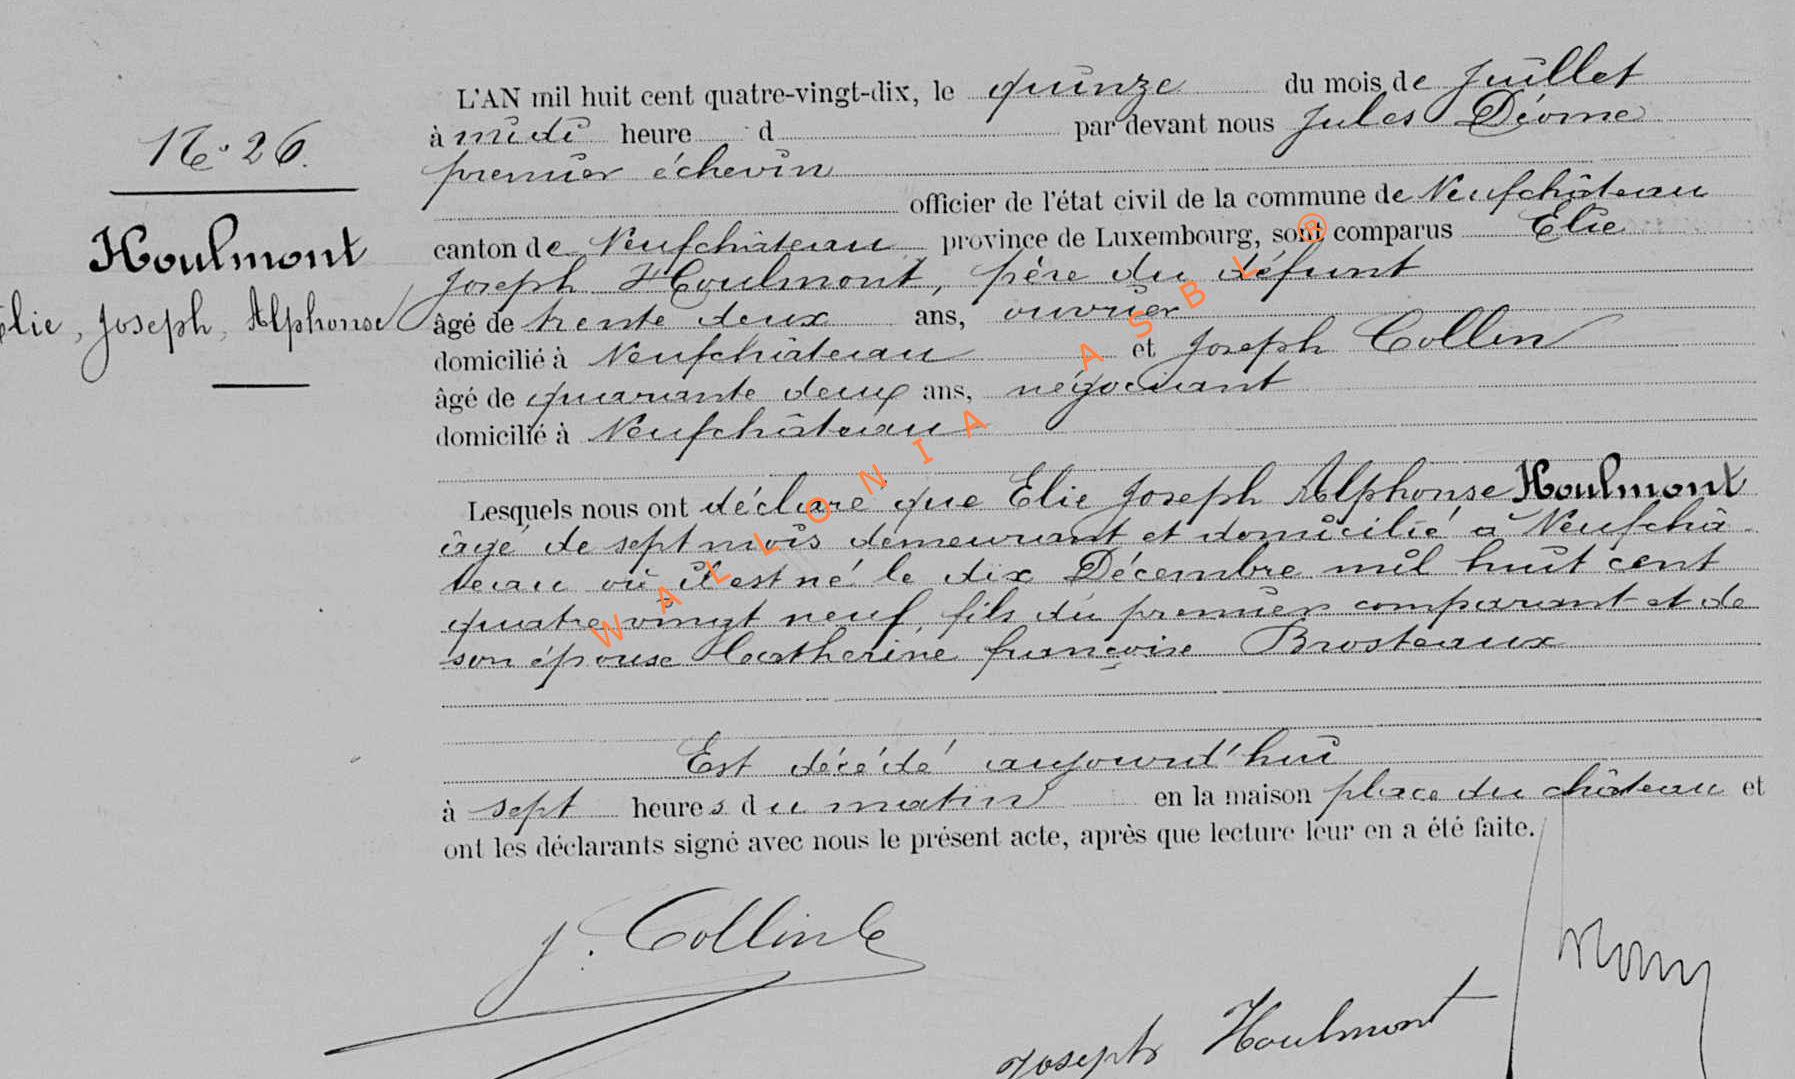 L'AN mil huit cent quatre-vingt-dix, le quinze du mois de Juillet
à midi heure d par devant nous Jules Déome
premier échevin
officier de l'état civil de la commune de Neufchâteau
canton de Neufchâteau province de Luxembourg, sont comparus Elie
Joseph Houlmont, père du défunt
âgé de trente deux ans, ouvrier
domicilié à Neufchâteau et Joseph Collin
âgé de quarante deux ans, négociant
domicilié à Neufchâteau
Lesquels nous ont déclaré que Elie Joseph Alphonse Houlmont
âgé de sept mois demeurant et domicilié à Neufchâ-
teau où il est né le dix Décembre mil huit cent
quatre vingt neuf, fils du premier comparant et de
son épouse Catherine françoise Brosteaux
Est décédé aujourd'hui
à sept heures du matin en la maison place du château et
ont les déclarants signé avec nous le présent acte, après que lecture leur en a été faite.
N° 26.
Houlmont
Elie, Joseph, Alphonse
J. Collin
Joseph Houlmont
WALLONIA ASBL ®